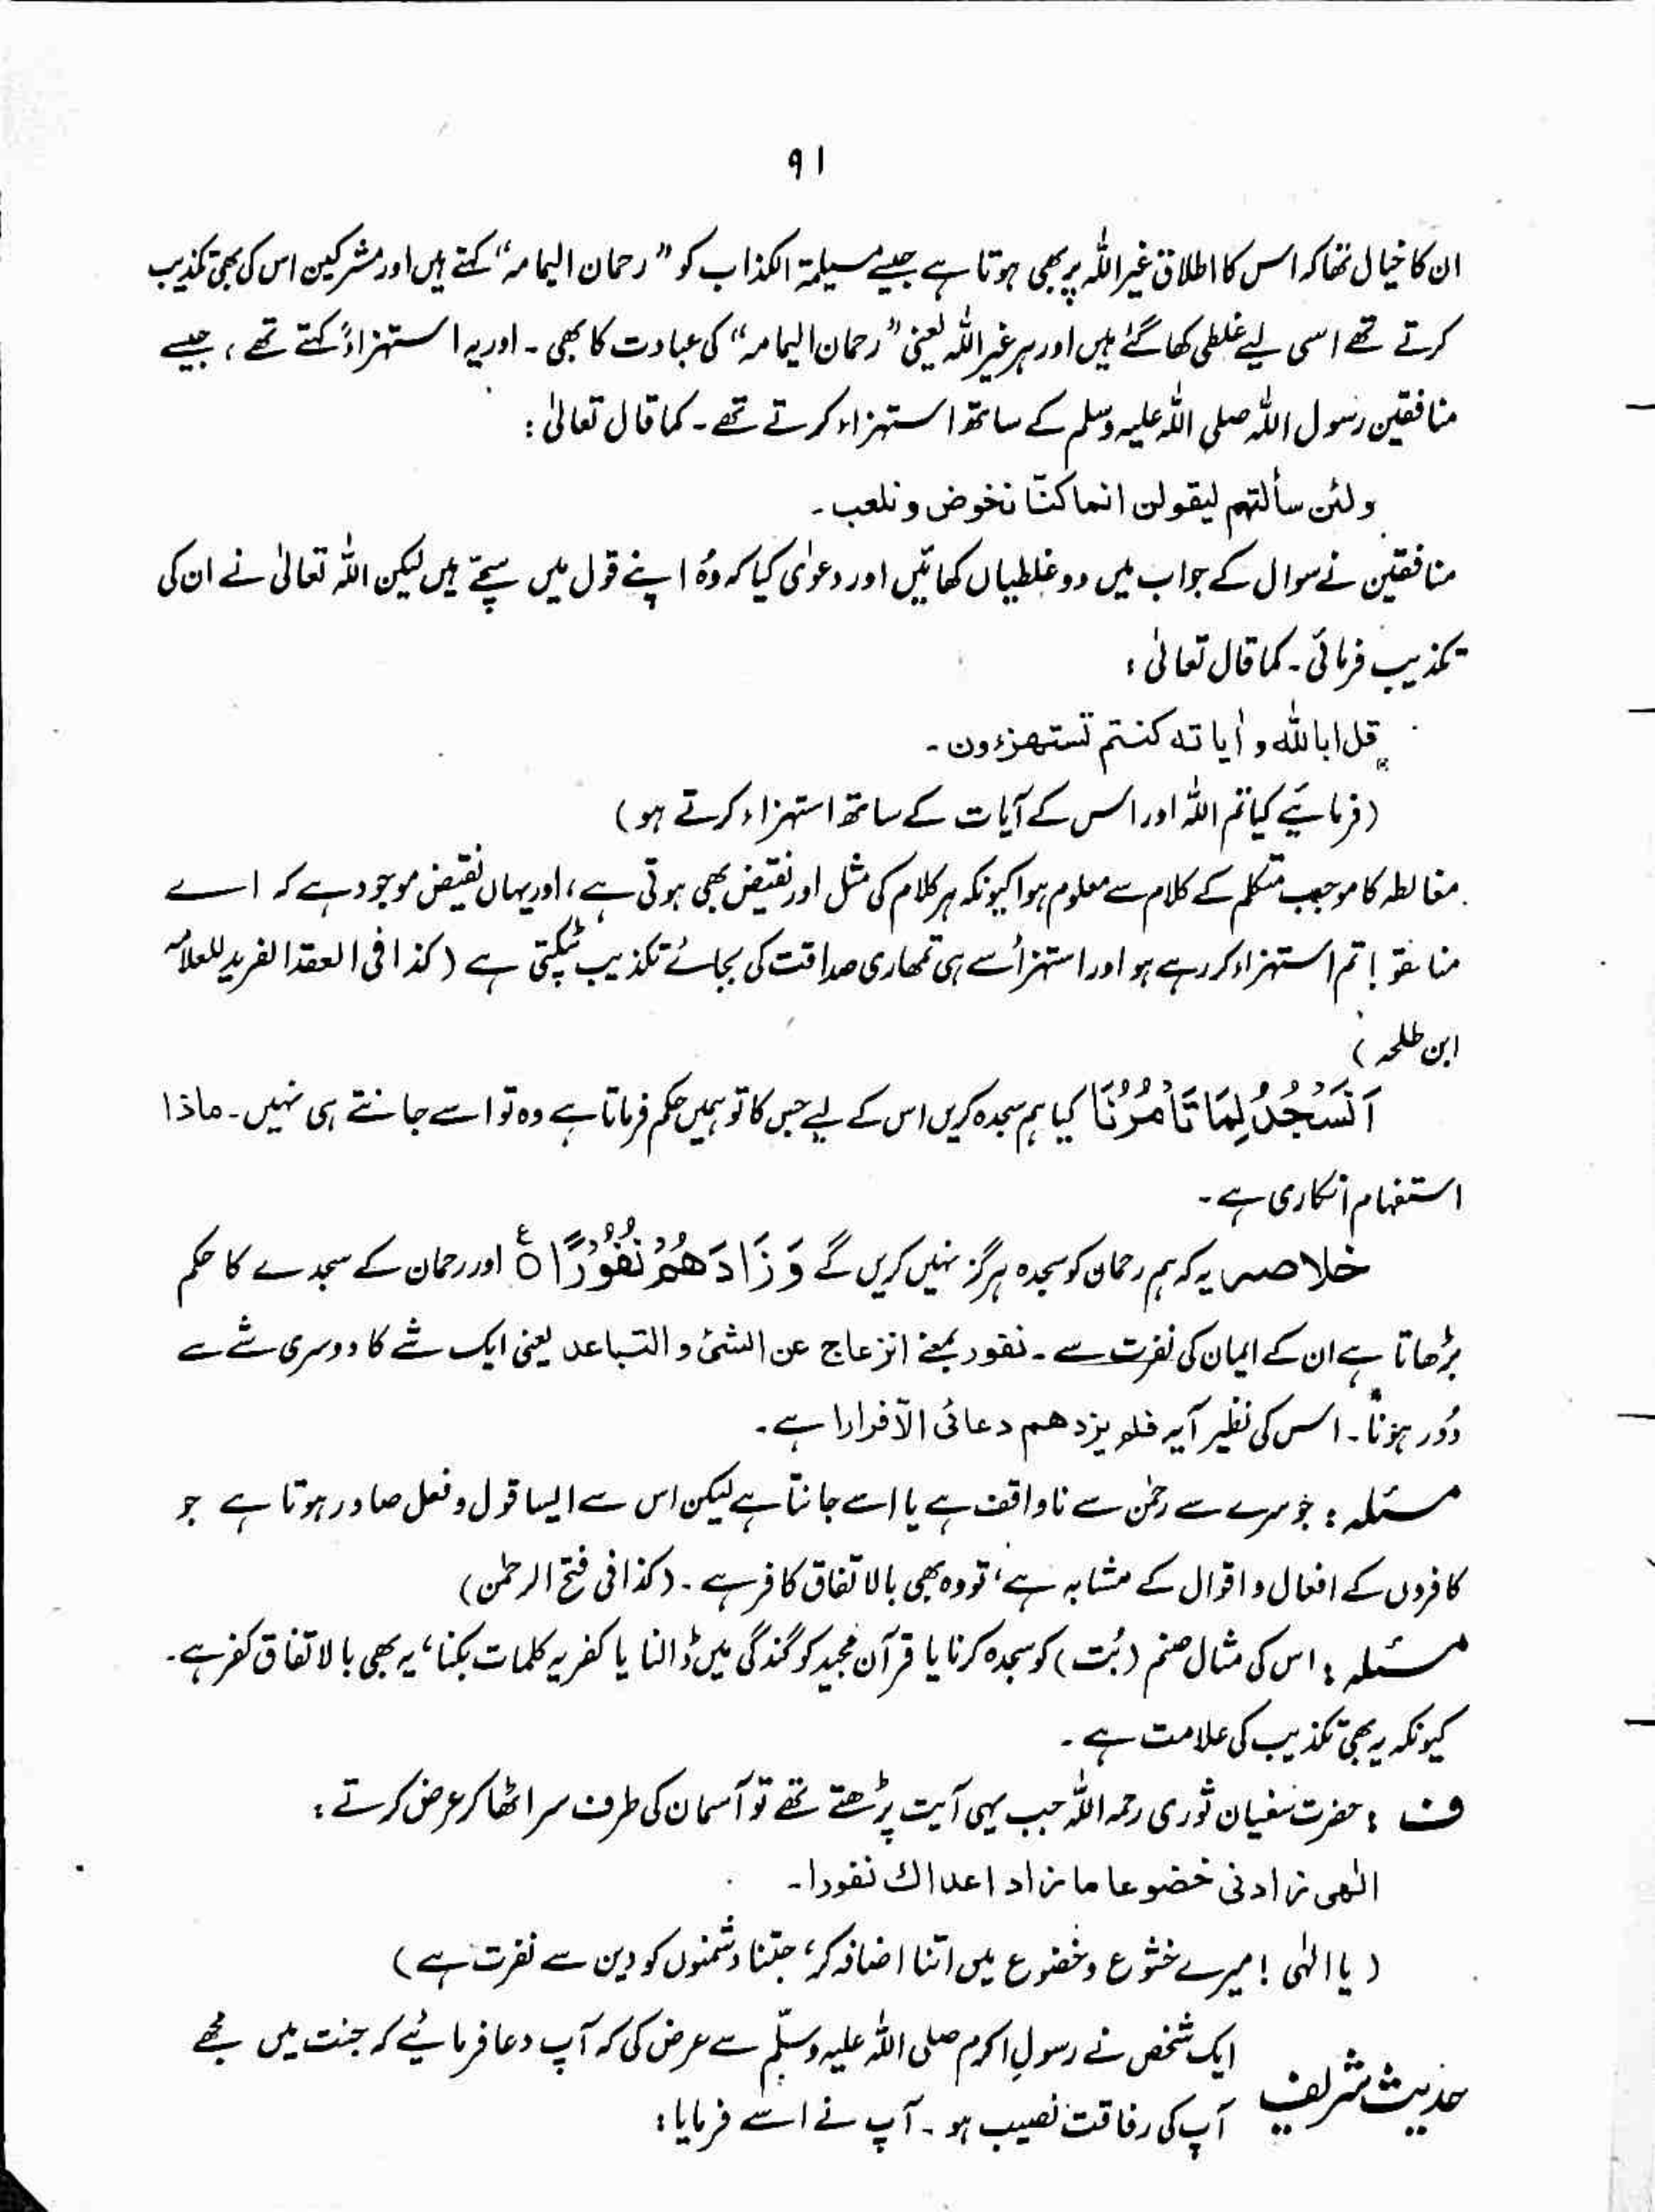 ۹۱
ان کا خیال تھا کہ اس کا اطلاق غیر اللہ پر بھی ہوتا ہے جیسے مسیلمۃ الکذاب کو "رحمان الیمامہ" کہتے ہیں اور مشرکین اس کی بھی تکذیب
کرتے تھے اسی لیے غلطی کھا گئے ہیں اور ہر غیر اللہ یعنی "رحمان الیمامہ" کی عبادت کا بھی ۔ اور یہ استہزاءً کہتے تھے ، جیسے
منافقین رسول اللہ صلی اللہ علیہ وسلم کے ساتھ استہزاء کرتے تھے ۔ کما قال تعالیٰ :
ولئن سألتہم لیقولن انما کنّا نخوض و نلعب ۔
منافقین نے سوال کے جواب میں دو غلطیاں کھائیں اور دعوٰی کیا کہ وہ اپنے قول میں سچّے ہیں لیکن اللہ تعالیٰ نے ان کی
تکذیب فرمائی ۔ کما قال تعالیٰ :
قل ابا للہ و اٰیاتہ کنتم تستھزءون ۔
(فرمائیے کیا تم اللہ اور اس کے آیات کے ساتھ استہزاء کرتے ہو)
مغالطہ کا موجب متکلم کے کلام سے معلوم ہوا کیونکہ ہر کلام کی مثل اور نقیض بھی ہوتی ہے ، اور یہاں نقیض موجود ہے کہ اے
منافقو ! تم استہزاء کر رہے ہو اور استہزأ سے ہی تمہاری صداقت کی بجائے تکذیب ٹپکتی ہے (کذا فی العقد الفرید للعلامہ
ابن طلحہ)
اَنَسْجُدُ لِمَا تَاْمُرُنَا کیا ہم سجدہ کریں اس کے لیے جس کا تو ہمیں حکم فرماتا ہے وہ تو اسے جانتے ہی نہیں ۔ ماذا
استفہام انکاری ہے ۔
خلاصہ یہ کہ ہم رحمان کو سجدہ ہرگز نہیں کریں گے وَ زَادَهُمْ نُفُوْرًا ۵ ع اور رحمان کے سجدے کا حکم
بڑھاتا ہے ان کے ایمان کی نفرت سے ۔ نفور بمعنے انزعاج عن الشئ و التباعد یعنی ایک شے کا دوسری شے سے
دُور ہونا ۔ اس کی نظیر آیہ فلو یزدھم دعائی الّا فرارا ہے ۔
مسئلہ : جو سرے سے رحمٰن سے ناواقف ہے یا اسے جانتا ہے لیکن اس سے ایسا قول و فعل صادر ہوتا ہے جو
کافروں کے افعال و اقوال کے مشابہ ہے ، تو وہ بھی بالاتفاق کافر ہے ۔ (کذا فی فتح الرحمٰن)
مسئلہ : اس کی مثال صنم (بُت) کو سجدہ کرنا یا قرآن مجید کو گندگی میں ڈالنا یا کفریہ کلمات بکنا ، یہ بھی بالاتفاق کفر ہے ۔
کیونکہ یہ بھی تکذیب کی علامت ہے ۔
ف : حضرت سفیان ثوری رحمہ اللہ جب یہی آیت پڑھتے تھے تو آسمان کی طرف سر اٹھا کر عرض کرتے :
الٰھی زادنی خضوعا ما زاد اعداك نفورا ۔
(یا الٰہی ! میرے خشوع و خضوع میں اتنا اضافہ کر ، جتنا دشمنوں کو دین سے نفرت ہے)
حدیث شریف ایک شخص نے رسولِ اکرم صلی اللہ علیہ وسلّم سے عرض کی کہ آپ دعا فرمائیے کہ جنت میں مجھے
آپ کی رفاقت نصیب ہو ۔ آپ نے اسے فرمایا :